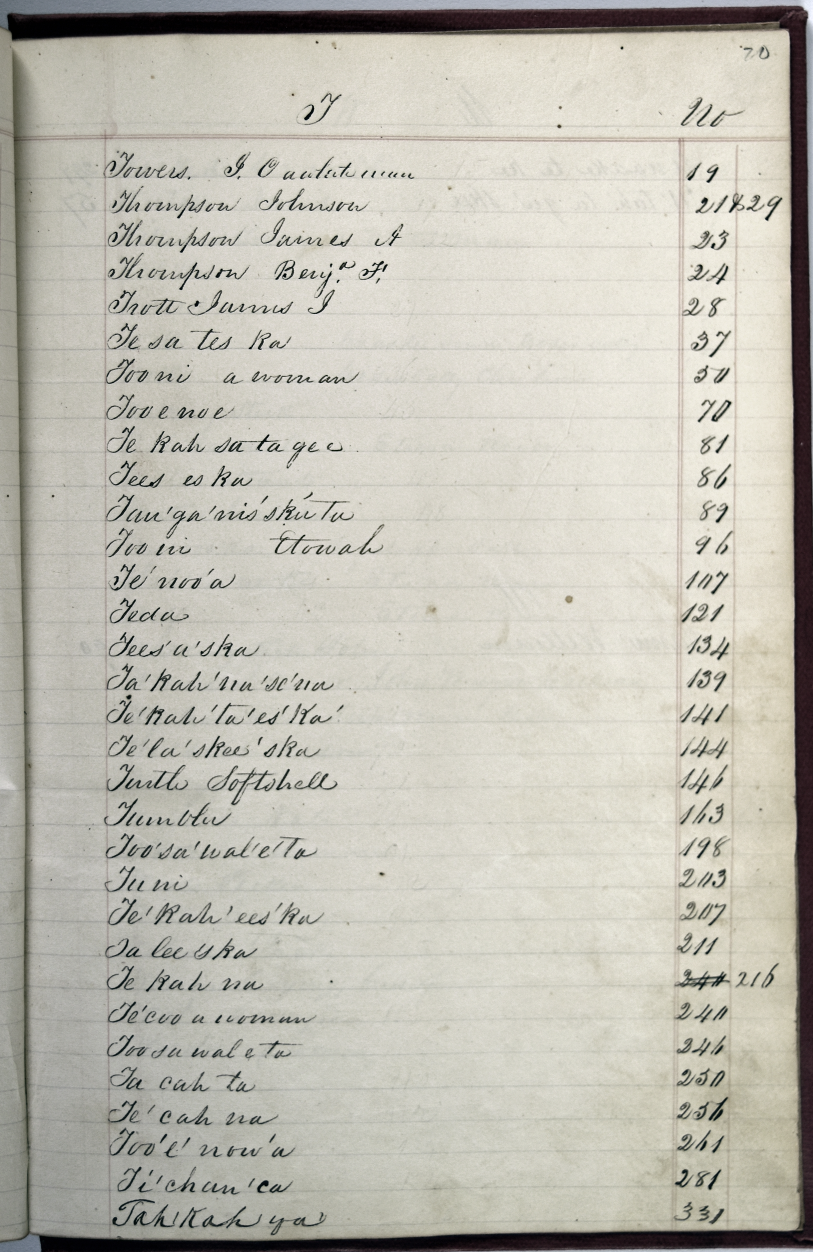 70
T No
Towers. J. Oaulatuman 19
Thompson Johnson 21&29
Thompson James A 23
Thompson Benjª. F. 24
Trott James J 28
Te sa tes ka 37
Too ni a woman 50
Too e noe 70
Te kah sa ta gee 81
Tees es ka 86
Tau'ga'nis'sku'ta 89
Too ni Etowah 96
Te'noo'a 107
Teda 121
Tees'a'ska 134
Ta'kah'na'se'na 139
Te'kah'ta'es'ka' 141
Te'la'skee'ska 144
Turtle Softshell 146
Tumbler 163
Too'sa'wal'e'ta 198
Tu ni 203
Te'kah'ees'ka 207
Ta lee'ska 211
Te kah na 240 216
Te'coo a woman 240
Too sa wal e ta 246
Ta cah ta 250
Te'cah na 256
Too'e'now'a 261
Ti'chun'ca 281
Tah Kah ya 331